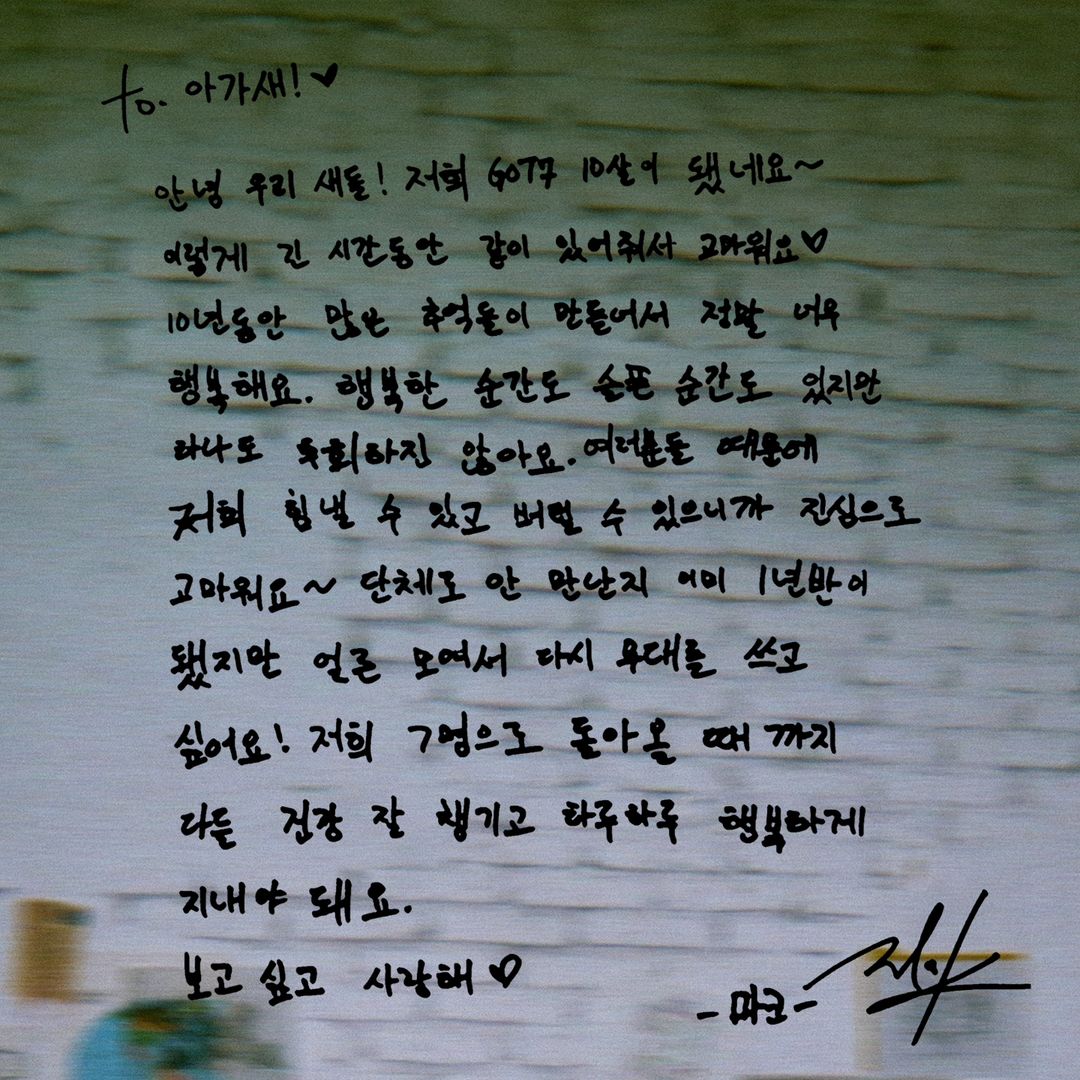 to. 아가새!♥
안녕 우리 새들! 저희 GOT7 10살이 됐네요~
이렇게 긴 시간동안 같이 있어줘서 고마워요♡
10년동안 많은 추억들이 만들어서 정말 너무
행복해요. 행복한 순간도 슬픈 순간도 있지만
하나도 후회하진 않아요. 여러분들 때문에
저희 힘낼 수 있고 버틸 수 있으니까 진심으로
고마워요~ 단체로 안 만난지 이미 1년반이
됐지만 얼른 모여서 다시 무대를 쓰고
싶어요! 저희 7명으로 돌아올 때 까지
다들 건강 잘 챙기고 하루하루 행복하게
지내야 돼요.
보고 싶고 사랑해♡
-마크-